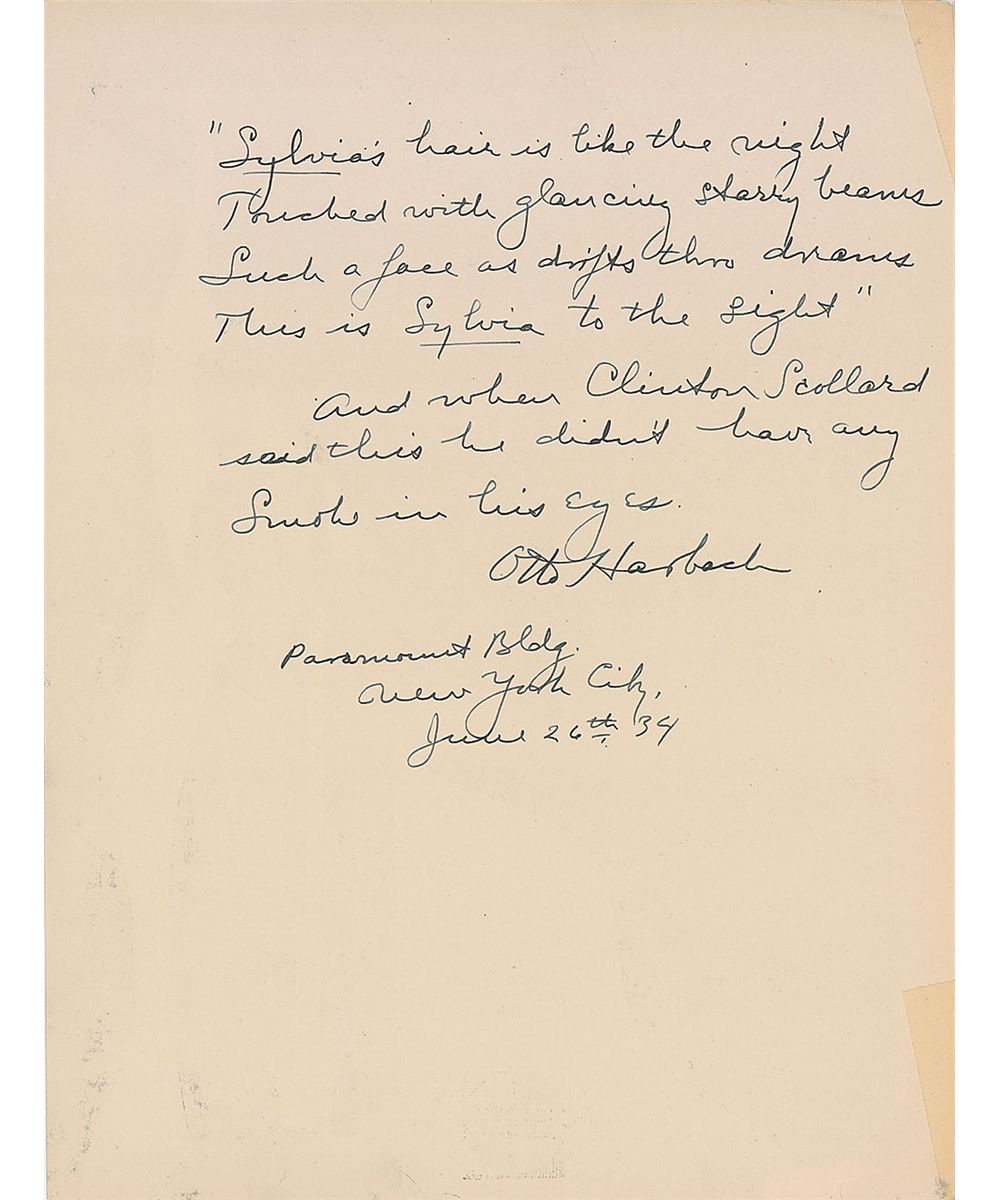 "Sylvia's hair is like the night
Touched with glancing starry beams
Such a face as drifts thro dreams
This is Sylvia to the sight"
And when Clinton Scollard
said this he didn't have any
Smoke in his eyes.
Otto Harbach
Paramount Bldg.
New York City,
June 26th 34